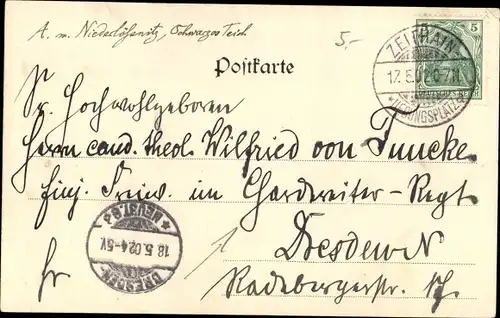 A. m. Niederlößnitz, Schwarzes Teich
5,-
5
ZEITHAIN
17.5.02. 6-7N.
ÜBUNGSPLATZ
Postkarte
Sr. Hochwohlgeboren
Herrn cand. theol. Wilfried von Funcke
Einj. Freiw. im Gardereiter-Regt
Dresden N
Hr
Radebergerstr.
DRESDEN
18.5.02.4-5V.
NEUST. 6